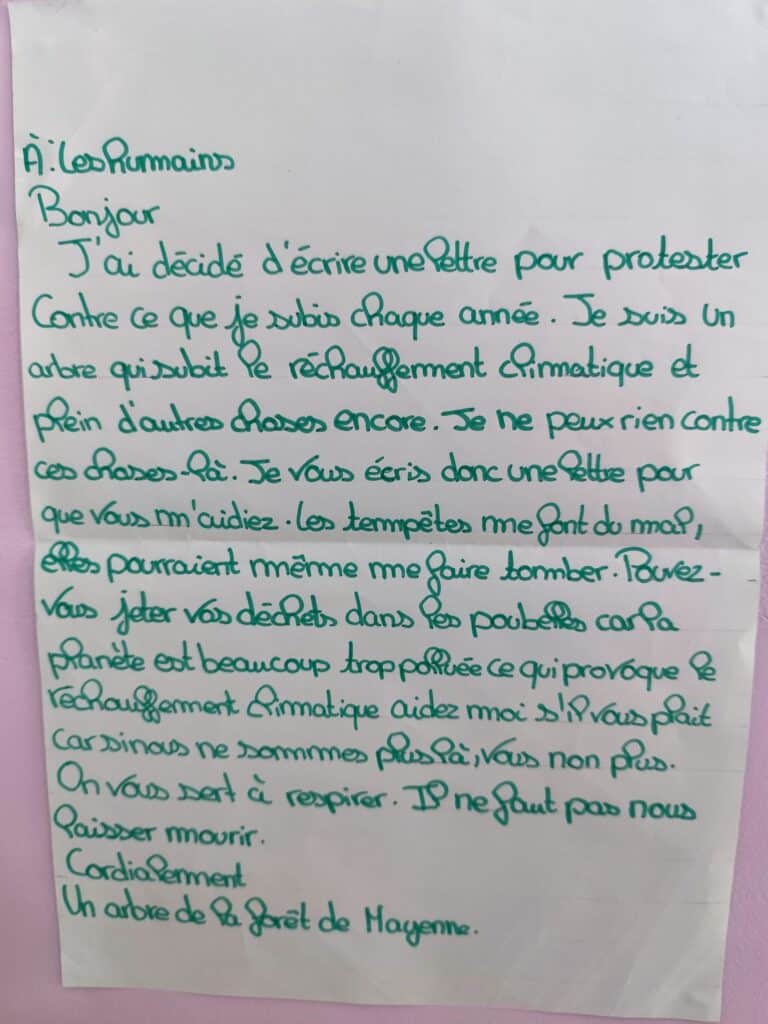 À : Les humains
Bonjour
J'ai décidé d'écrire une lettre pour protester
Contre ce que je subis chaque année. Je suis un
arbre qui subit le réchauffement climatique et
plein d'autres choses encore. Je ne peux rien contre
ces choses-là. Je vous écris donc une lettre pour
que vous m'aidiez. Les tempêtes me font du mal,
elles pourraient même me faire tomber. Pouvez-
vous jeter vos déchets dans les poubelles car la
planète est beaucoup trop polluée ce qui provoque le
réchauffement climatique aidez moi s'il vous plait
car si nous ne sommes plus là, vous non plus.
On vous sert à respirer. Il ne faut pas nous
laisser mourir.
Cordialement
Un arbre de la forêt de Mayenne.